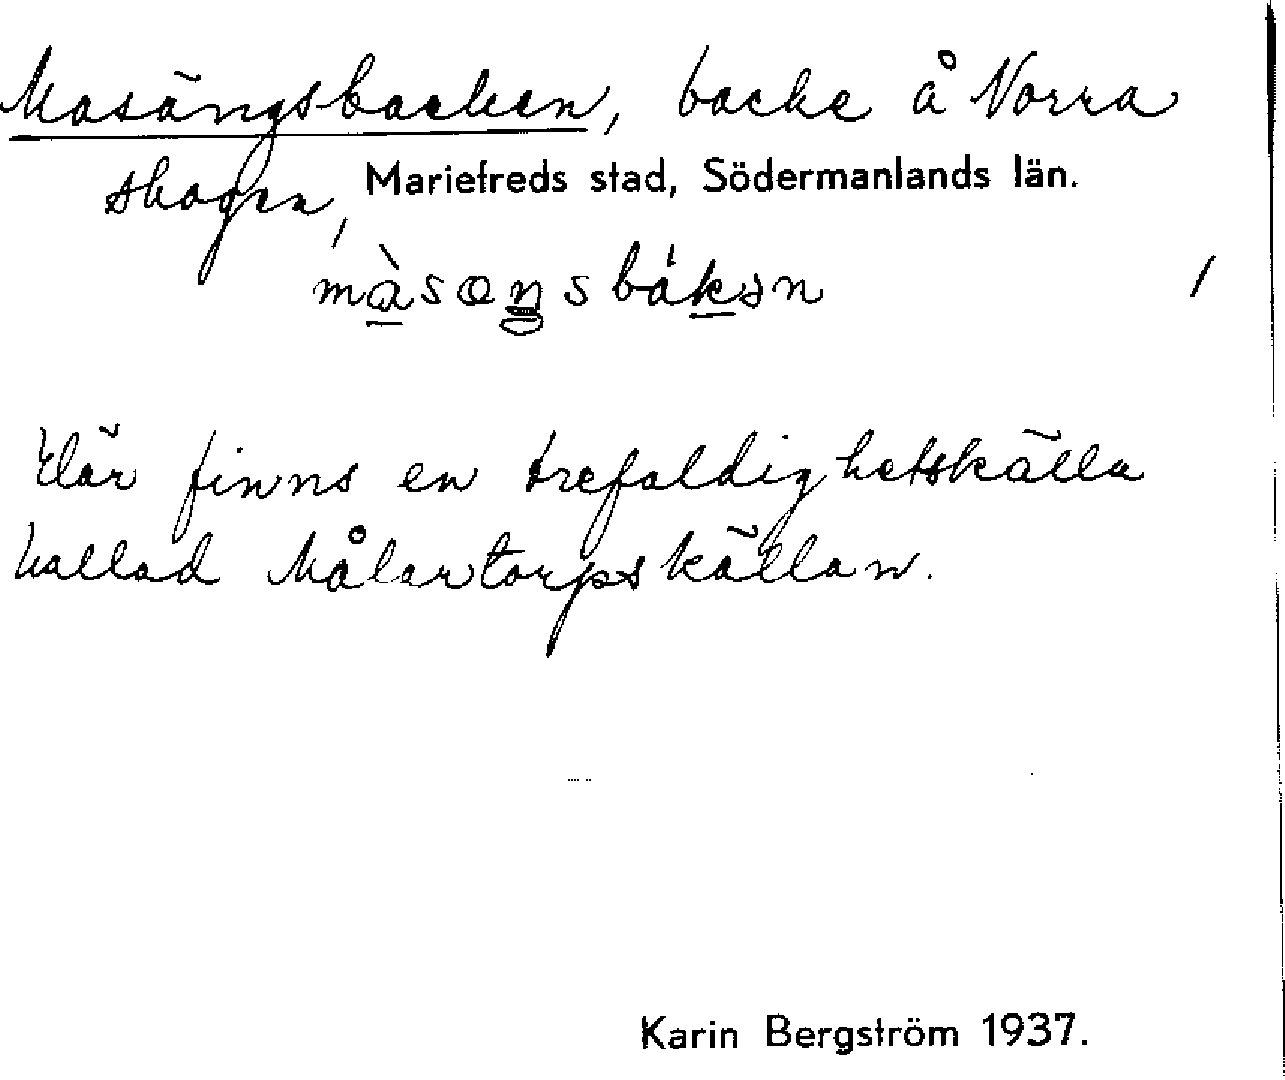 Masängsbacken, backe å Norra
skogen, Mariefreds stad, Södermanlands län.
Här finns en trefaldighetskälla
kallad Målartorpskällan.
Karin Bergström 1937.